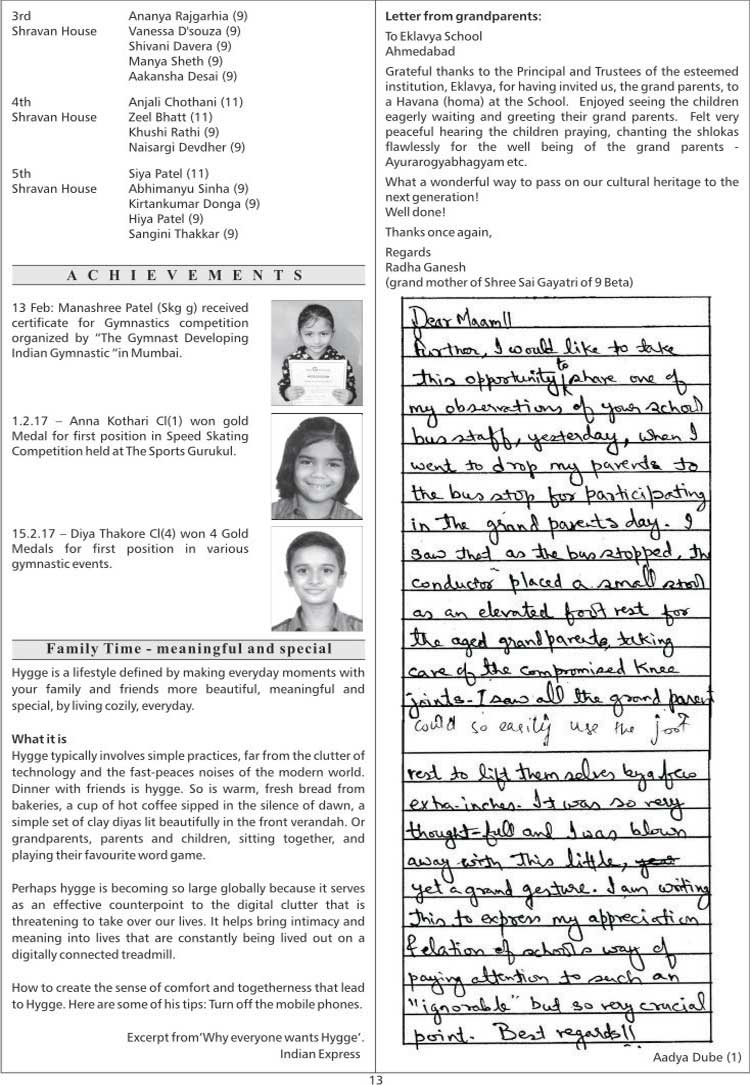 3rd Ananya Rajgarhia (9)
Shravan House Vanessa D'souza (9)
Shivani Davera (9)
Manya Sheth (9)
Aakansha Desai (9)
4th Anjali Chothani (11)
Shravan House Zeel Bhatt (11)
Khushi Rathi (9)
Naisargi Devdher (9)
5th Siya Patel (11)
Shravan House Abhimanyu Sinha (9)
Kirtankumar Donga (9)
Hiya Patel (9)
Sangini Thakkar (9)
ACHIEVEMENTS
13 Feb: Manashree Patel (Skg g) received
certificate for Gymnastics competition
organized by "The Gymnast Developing
Indian Gymnastic "in Mumbai.
1.2.17 – Anna Kothari Cl(1) won gold
Medal for first position in Speed Skating
Competition held at The Sports Gurukul.
15.2.17 – Diya Thakore Cl(4) won 4 Gold
Medals for first position in various
gymnastic events.
Family Time - meaningful and special
Hygge is a lifestyle defined by making everyday moments with
your family and friends more beautiful, meaningful and
special, by living cozily, everyday.
What it is
Hygge typically involves simple practices, far from the clutter of
technology and the fast-peaces noises of the modern world.
Dinner with friends is hygge. So is warm, fresh bread from
bakeries, a cup of hot coffee sipped in the silence of dawn, a
simple set of clay diyas lit beautifully in the front verandah. Or
grandparents, parents and children, sitting together, and
playing their favourite word game.
Perhaps hygge is becoming so large globally because it serves
as an effective counterpoint to the digital clutter that is
threatening to take over our lives. It helps bring intimacy and
meaning into lives that are constantly being lived out on a
digitally connected treadmill.
How to create the sense of comfort and togetherness that lead
to Hygge. Here are some of his tips: Turn off the mobile phones.
Excerpt from'Why everyone wants Hygge'.
Indian Express
Letter from grandparents:
To Eklavya School
Ahmedabad
Grateful thanks to the Principal and Trustees of the esteemed
institution, Eklavya, for having invited us, the grand parents, to
a Havana (homa) at the School. Enjoyed seeing the children
eagerly waiting and greeting their grand parents. Felt very
peaceful hearing the children praying, chanting the shlokas
flawlessly for the well being of the grand parents -
Ayurarogyabhagyam etc.
What a wonderful way to pass on our cultural heritage to the
next generation!
Well done!
Thanks once again,
Regards
Radha Ganesh
(grand mother of Shree Sai Gayatri of 9 Beta)
Dear Maam!!
Further, I would like to take
this opportunity to share one of
my observations of your school
bus staff, yesterday, when I
went to drop my parents to
the bus stop for participating
in the grand parents day. I
saw that as the bus stopped, the
conductor placed a small stool
as an elevated foot rest for
the aged grandparents, taking
care of the compromised knee
joints. I saw all the grand parent
could so easily use the foot
rest to lift them selves by a few
extra-inches. It was so very
thought-full and I was blown
away with this little,
yet a grand gesture. I am writing
this to express my appreciation
relation of school's way of
paying attention to such an
"ignorable" but so very crucial
point. Best regards!!
Aadya Dube (1)
13